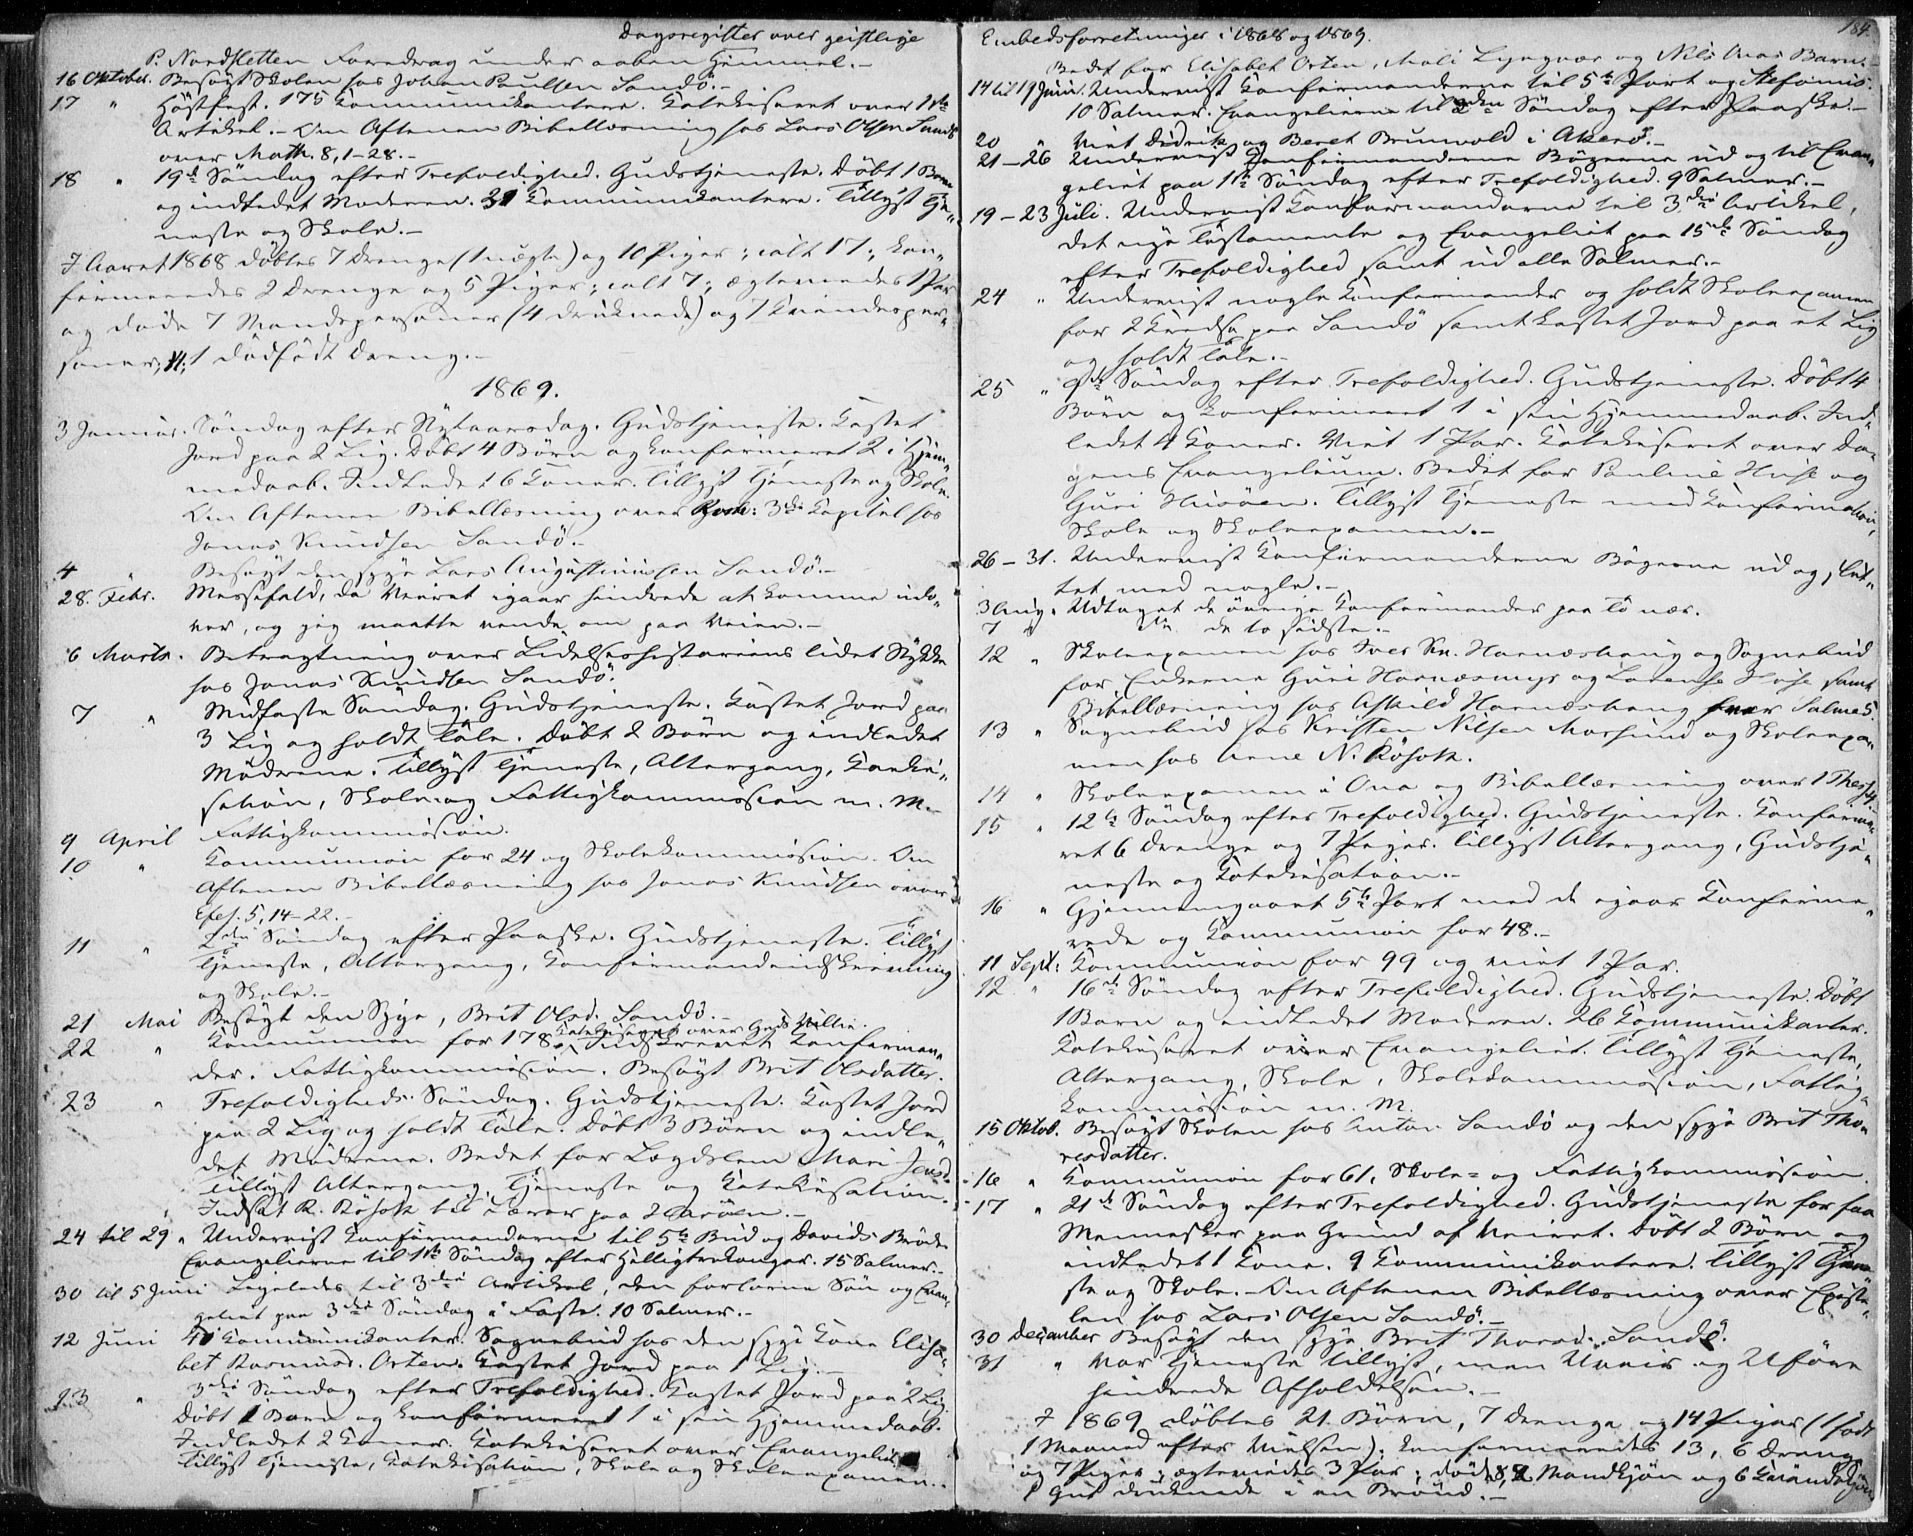 Dagsregister over geistlige
P. Nordsletten Foredrag under aaben Himmel.-
16 Oktober. Besøgt Skolen hos Johan Paulsen Sandø.-
17 " Høstfest. 175 Kommunikantere. Katekiseret over 1ste
Artikel. - Om Aftenen Bibellæsning hos Lars Olsen Sandø
over Math. 8, 1-28.-
18 " 19de Søndag efter Trefoldighed. Gudstjeneste. Døbt 1 Barn
og indledet Moderen. 31 Kommunikantere. Tillyst Tje-
neste og Skole.-
I Aaret 1868 døbtes 7 Drenge (1 uægte) og 10 Piger; ialt 17; kon-
firmeredes 2 Drenge og 5 Piger; ialt 7; ægteviedes 1 Par
og døde 7 Mandspersoner (4 druknede) og 7 Kvindesper-
soner, 1 dødfødt Dreng.-
1869.
3 Januar. Søndag efter Nytaarsdag. Gudstjeneste. Kastet
Jord paa 2 Lig. Døbt 4 Børn og konfirmeret 2 i Hjem-
medaab. Indledet 6 Koner. Tillyst Tjeneste og Skole.
Om Aftenen Bibellæsning over Rom: 3die Kapitel hos
Jonas Knudsen Sandø.-
4 " Besøgt den syge Lars Augustinussen Sandø.-
28. Febr. Messefald, da Veiret igaar hindrede at komme udo-
ver, og jeg maatte vende om paa Veien.-
6 Marts. Betragtning over Lidelseshistoriens lidet Stykke
hos Jonas Knudsen Sandø.
7 " Midfaste Søndag. Gudstjeneste. Kastet Jord paa
3 Lig og holdt Tale. Døbt 2 Børn og indledet
Mødrene. Tillyst Tjeneste, Altergang, Kateki-
sation, Skole- og Fattigkommission m. M.
9 April Fattigkommission.
10 " Kommunion for 24 og Skolekommission. Om
Aftenen Bibellæsning hos Jonas Knudsen over
Efes. 5, 14-22.-
11 " 2den Søndag efter Paaske. Gudstjeneste. Tillyst
Tjeneste, Altergang, Konfirmandindskrivning
og Skole.-
21 Mai Besøgt den Syge, Brit Olsd. Sandø.-
Katekiseret over Guds Villie.
22 " Kommunion for 178. Indskrevet Konfirman-
der. Fattigkommission. Besøgt Brit Olsdatter.
23 " Trefoldigheds Søndag. Gudstjeneste. Kastet Jord
paa 2 Lig og holdt Tale. Døbt 3 Børn og indle-
det Mødrene. Bedet for Lægdslem Mari Jensd.
Tillyst Altergang, Tjeneste og Katekisation.
Indsat R. Røsok til Lærer paa
24 til 29 " Undervist Konfirmanderne til 5te Bud og Davids Brøde
Evangelierne til 1ste Søndag efter Helligtrekonger. 15 Salmer.-
30 til 5 Juni Ligeledes til 3die Artikel, den forlorne Søn og Evan-
geliet paa 3die Søndag i Faste. 10 Salmer.-
12 Juni Kommunikanter. Sognebud hos den syge Kone Elisa-
bet Rasmusd. Orten. Kastet Jord paa 1 Lig.-
13 " 3die Søndag efter Trefoldighed. Kastet Jord paa 2 Lig.
Døbt 1 Barn og konfirmeret 1 i sin Hjemmedaab.
Indledet 2 Koner. Katekiseret over Evangeliet
Tillyst Tjeneste, Katekisation, Skole og Skoleexamen..
Embedsforretninger i 1868 og 1869.
184
Bedet for Elisabet Orten, Mali Lyngvær og Nils Onas Barn.-
14 til 19 Juni. Undervist Konfirmanderne til 5te Part og Stefanus.
10 Salmer. Evangelierne til 2den Søndag efter Paaske.-
20 " Viet Didrik og Beret Brunvold i Akerø.-
21-26 Undervist Konfirmanderne Bøgerne ud og til Evan-
geliet paa 1ste Søndag efter Trefoldighed. 9 Salmer.-
19-23 Juli. Undervist Konfirmanderne til 3die Artikel,
det nye Testamente og Evangeliet paa 15de Søndag
efter Trefoldighed samt ud alle Salmer.-
24 " Undervist nogle Konfirmander og holdt Skoleexamen
for 2 Kredse paa Sandø samt kastet Jord paa et Lig
og holdt Tale.-
25 " 9de Søndag efter Trefoldighed. Gudstjeneste. Døbt 4
Børn og konfirmeret 1 i sin Hjemmedaab. Ind-
ledet 4 Koner. Viet 1 Par. Katekiseret over Da-
gens Evangelium. Bedet for Pauline Huse og
Guri Husøen. Tillyst Tjeneste med Konfirmation,
Skole og Skoleexamen.-
26-31. Undervist Konfirmanderne Bøgerne ud og slut-
tet med nogle.-
3 Aug. Udtaget de øvrige Konfirmander paa nær.
7 " do de to sidste.-
12 " Skoleexamen hos Iver Kn. Harnæshaug og Sognebud
for Enkerne Guri Harnæsmyr og Lorense Huse samt
Bibellæsning hos Askild Harnæshaug over Salme 5.
13 " Sognebud hos Kristen Nilsen Morsund og Skoleexa-
men hos Arne N. Røsok.
14 " Skoleexamen i Ona og Bibellæsning over 1 Thess 4.
15 " 12te Søndag efter Trefoldighed. Gudstjeneste. Konfirme-
ret 6 Drenge og 7 Piger. Tillyst Altergang, Gudstje-
neste og Katekisation.-
16 " Gjennemgaaet 5te Part med de igaar Konfirme-
rede og Kommunion for 48.-
11 Sept: Kommunion for 99 og viet 1 Par.
12 " 16de Søndag efter Trefoldighed. Gudstjeneste. Døbt
1 Barn og indledet Moderen. 26 Kommunikanter.
Katekiseret over Evangeliet. Tillyst Tjeneste,
Altergang, Skole, Skolekommission, Fattig-
kommission m. M.
15 Oktob. Besøgt Skolen hos Anton Sandø og den syge Brit Tho-
resdatter.
16 " Kommunion for 61. Skole- og Fattigkommission.
17 " 21de Søndag efter Trefoldighed. Gudstjeneste for faa
Mennesker paa Grund af Veiret. Døbt 2 Børn og
indledet 1 Kone. 9 Kommunikantere. Tillyst Tjene-
ste og Skole. - Om Aftenen Bibellæsning over Epist-
len hos Lars Olsen Sandø.-
30 December Besøgt den syge Brit Thorsd. Sandø.
31 " Var Tjeneste tillyst, men Uveir og Uføre
hindrede Afholdelsen.-
I 1869 døbtes 21 Børn, 7 Drenge og 14 Piger (1 født
1 Maaned efter Vielsen). Konfirmeredes 13, 6 Drenge
og 7 Piger; ægteviedes 3 Par; døde 8, 2 Mandkjøn og 6 Kvindekjøn
1 Gut druknede i en Brønd.-